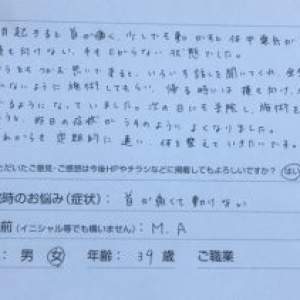 起きると首が痛く、少しでも動かすと体中電気が
向けない、手も上がらない状態でした。
思いで来ると、いろいろ話しを聞いてくれ、
ないように施術してもらい、帰る時には横も向け、
るようになっていました。次の日にも予約し、施術を
うと、昨日の症状がうそのようによくなりました。
これからも定期的に通い、体を整えていきたいです。
ただいたご意見・ご感想は今後HPやチラシなどに掲載してもよろしいですか? はい
時のお悩み(症状): 首が痛くて動けない
前(イニシャル等でも構いません): M.A
: 男 女 年齢: 39 歳 ご職業